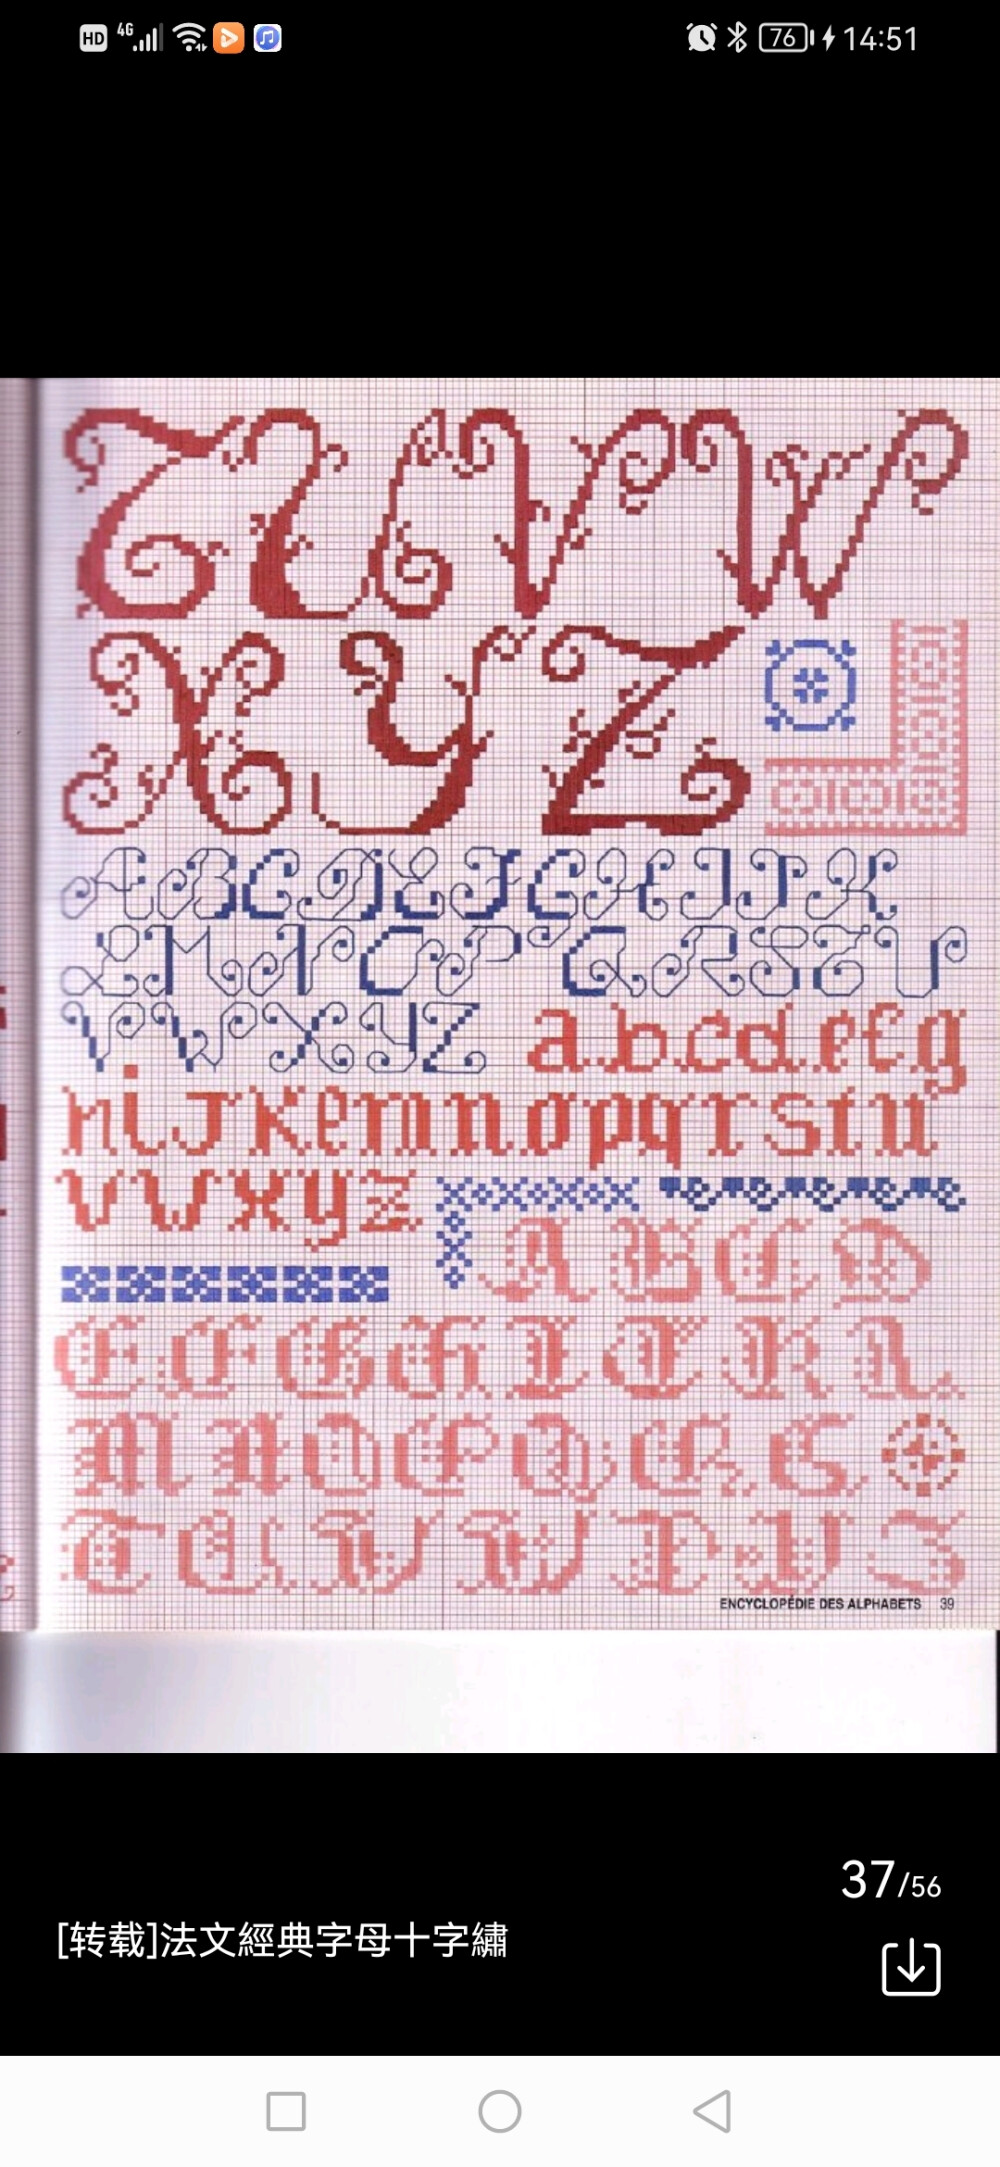 HD 4G 76 14:51
T U V W
X Y Z
A B C D E F G H I J K
L M N O P Q R S T U
V W X Y Z
a b c d e f g
h i j k l m n o p q r s t u
v w x y z
A B C D
E F G H I J K L
M N O P Q R S
T U V W X Y Z
ENCYCLOPÉDIE DES ALPHABETS 39
37/56
[转载]法文經典字母十字繡